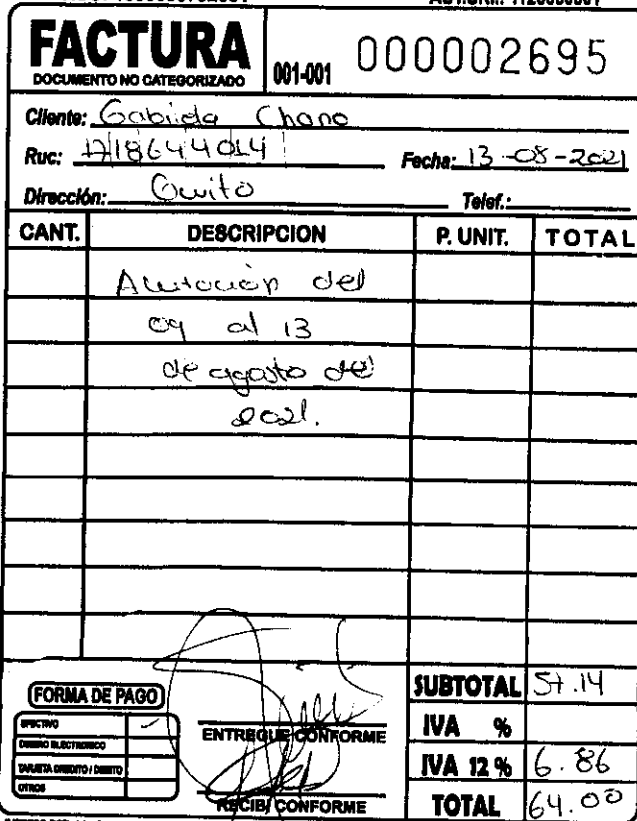 FACTURA
DOCUMENTO NO CATEGORIZADO
001-001
000002695
Cliente: Gabriela Chano
Ruc: 1718644014
Fecha: 13-08-2021
Dirección: Quito
Telef.:
CANT. DESCRIPCION P. UNIT. TOTAL
del
09 al 13
de agosto del
2021.
FORMA DE PAGO
EFECTIVO
DINERO ELECTRONICO
TARJETA CREDITO / DEBITO
OTROS
ENTREGUE CONFORME
RECIBI CONFORME
SUBTOTAL 57.14
IVA %
IVA 12 % 6.86
TOTAL 64.00